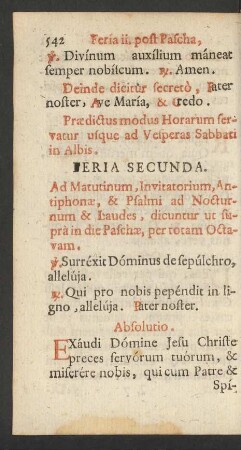 542 Feria ii. post Pascha,
℣. Divínum auxílium máneat
semper nobíscum. ℟. Amen.
Deinde dicitùr secretò, Pater
noster, Ave María, & Credo.
Prædictus modus Horarum ser-
vatur usque ad Vesperas Sabbati
in Albis.
FERIA SECUNDA.
Ad Matutinum, Invitatorium, An-
tiphonæ, & Psalmi ad Noctur-
num & Laudes, dicuntur ut su-
prà in die Paschæ, per totam Octa-
vam.
℣. Surréxit Dóminus de sepúlchro,
allelúja.
℟. Qui pro nobis pepéndit in li-
gno, allelúja. Pater noster.
Absolutio.
EXáudi Dómine Jesu Christe
preces servórum tuórum, &
miserére nobis, qui cum Patre &
Spí-